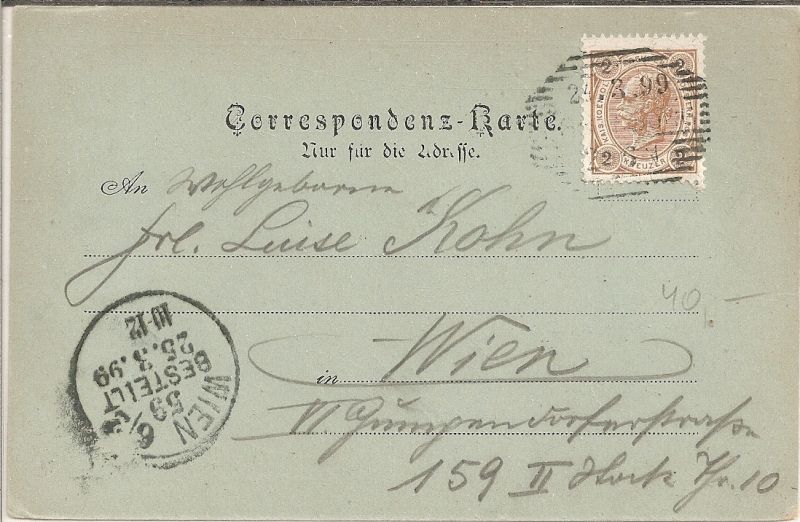 2 2
24.3.99
2 KREUZER 2
Correspondenz-Karte.
Nur für die Adresse.
An Wohlgeborne
Frl. Luise Kohn
40,–
in Wien
VI Gumpendorferstraße
159 II Stock Th. 10
WIEN 6/1
59
BESTELLT
25.3.99
10-12